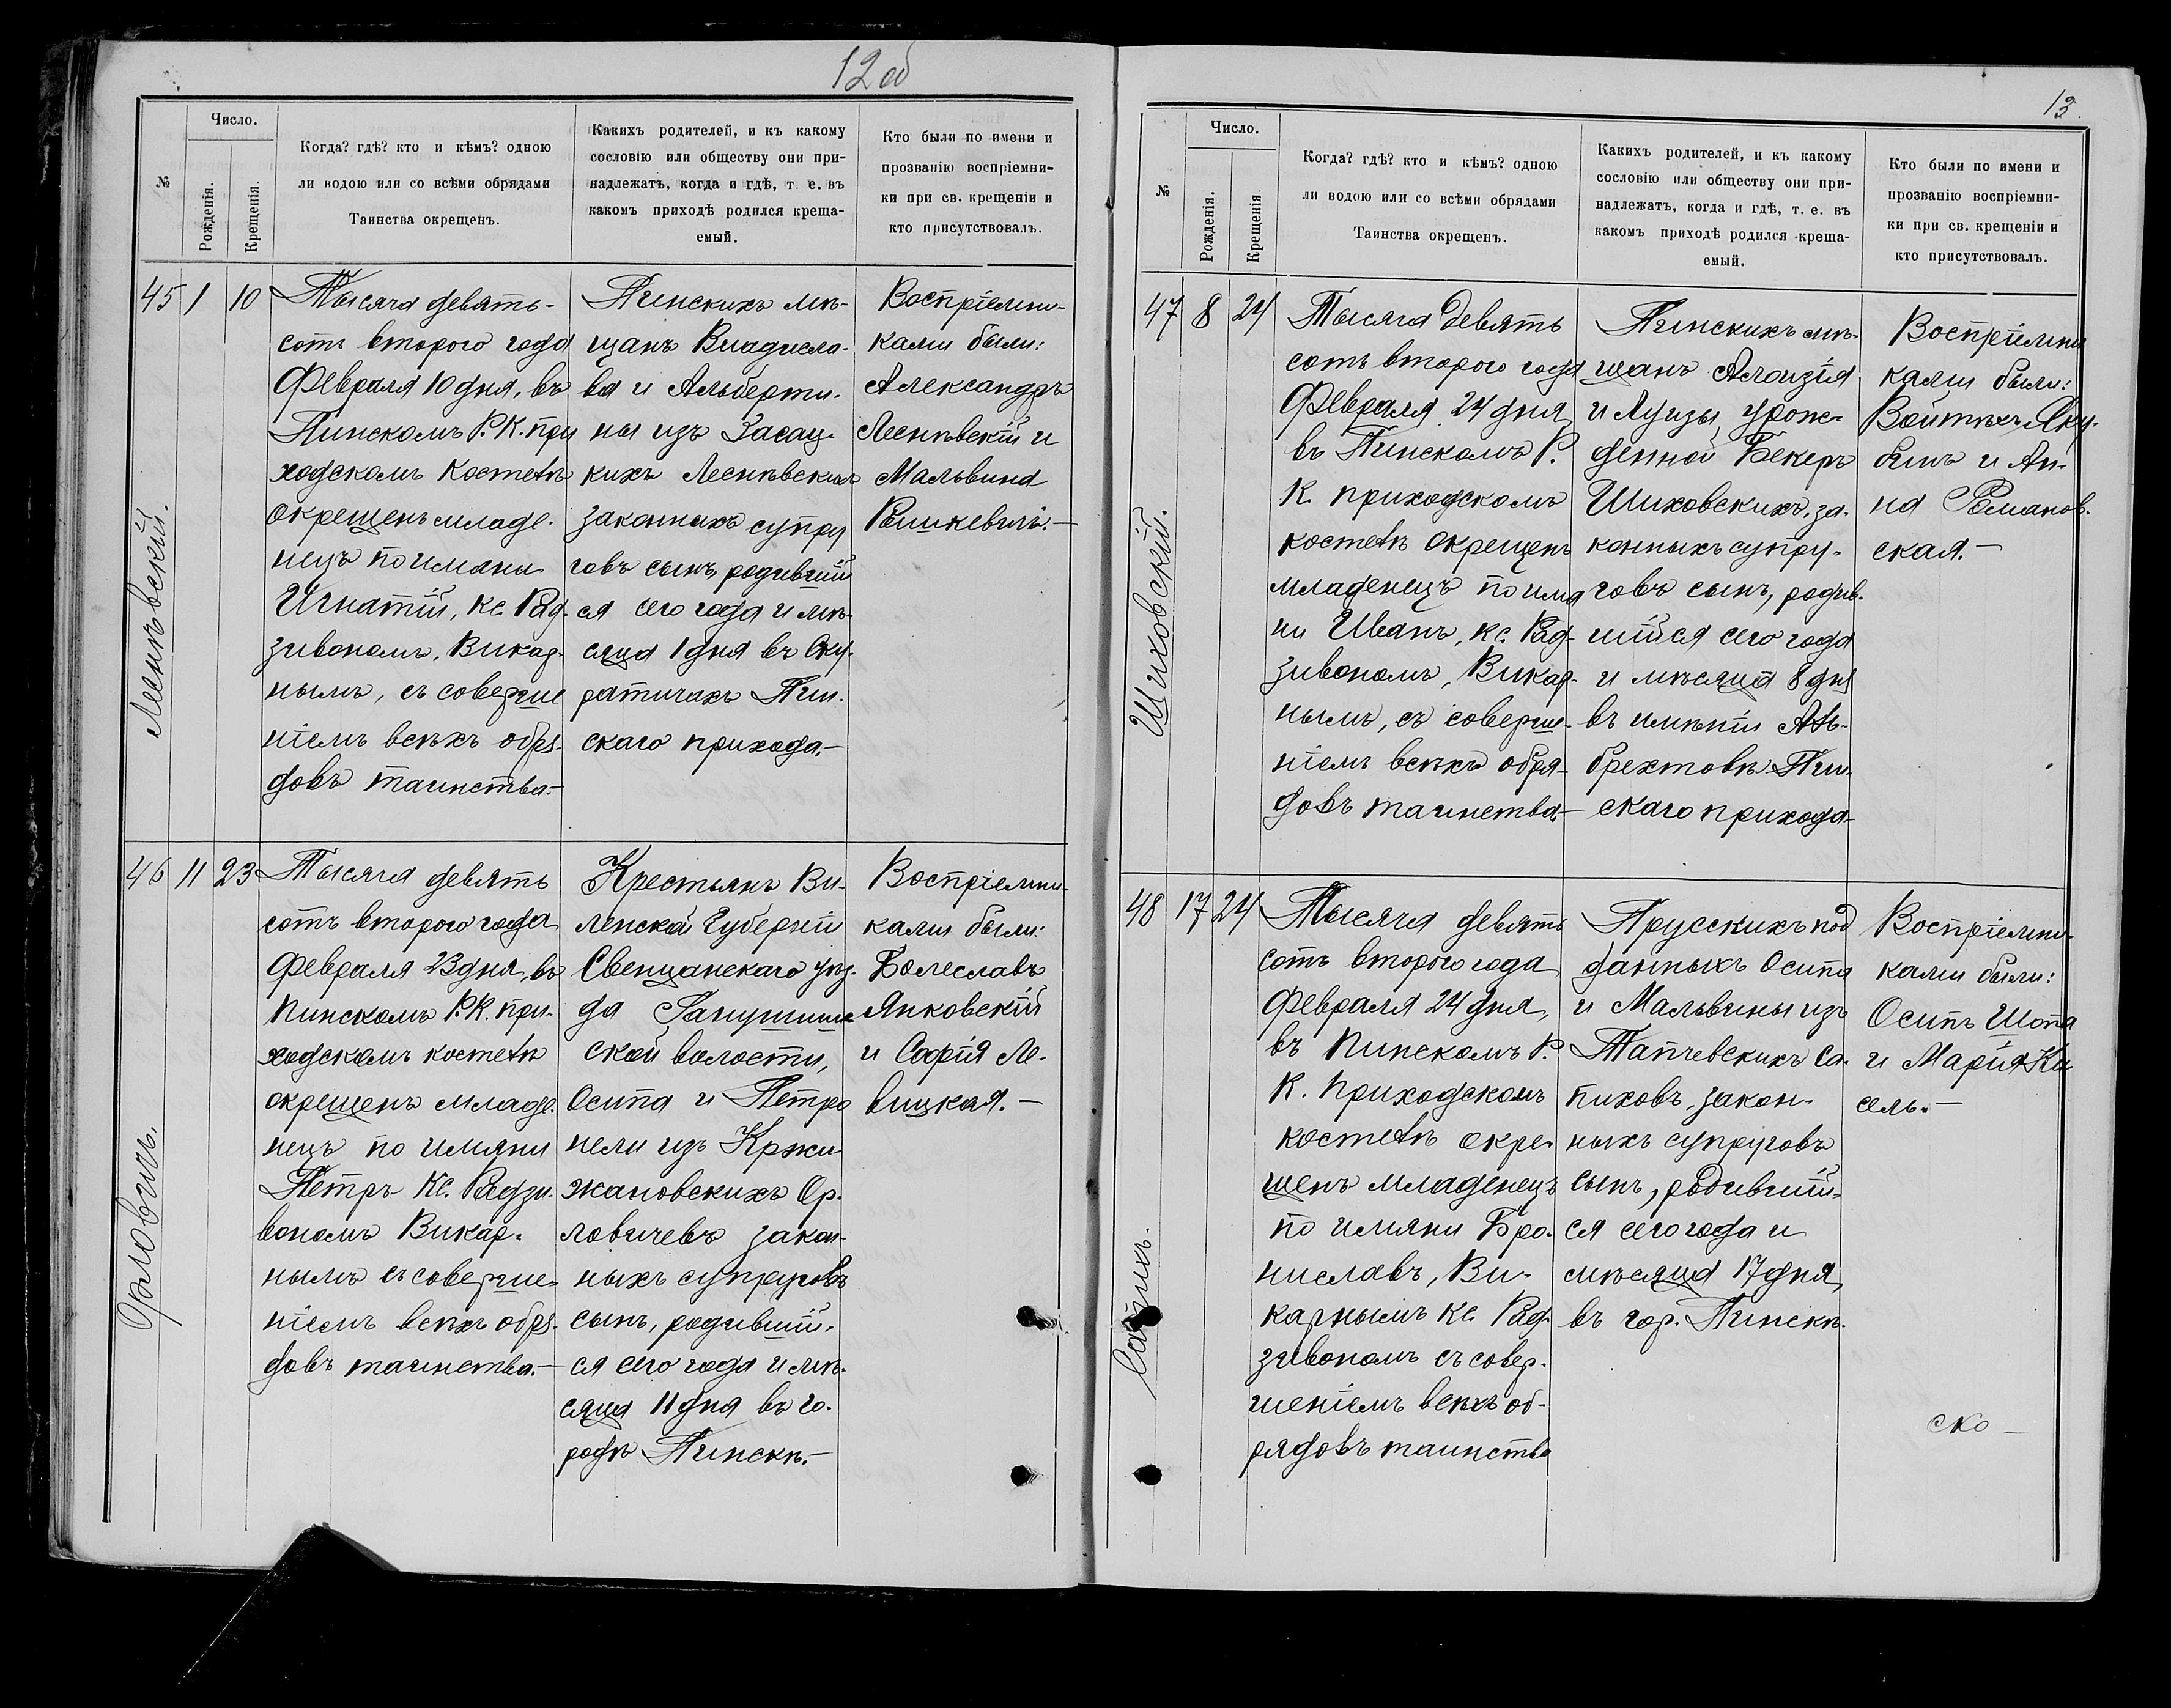 12 об
№
Число.
Рожденія.
Крещенія.
Когда? гдѣ? кто и кѣмъ? одною
ли водою или со всѣми обрядами
Таинства окрещенъ.
Какихъ родителей, и къ какому
сословію или обществу они при-
надлежатъ, когда и гдѣ, т. е. въ
какомъ приходѣ родился креща-
емый.
Кто были по имени и
прозванію воспріемни-
ки при св. крещеніи и
кто присутствовалъ.
Лесневскій.
45 1 10
Тысяча девять-
сотъ второго года
Февраля 10 дня, въ
Пинскомъ Р. К. при
ходскомъ Костелѣ
окрещенъ младе-
нецъ по имяни
Игнатій, кс. Рад-
зивономъ, Викар-
нымъ, съ соверше
ніемъ всѣхъ обря-
довъ таинства.—
Пинскихъ мѣ-
щанъ Владисла-
ва и Альберти-
ны изъ Засац-
кихъ Леснѣвскихъ
законныхъ супру
говъ сынъ, родившій
ся сего года и мѣ-
сяца 1 дня въ Ску-
ратичахъ Пин-
скаго прихода.—
Воспріемни-
ками были:
Александръ
Леснѣвскій и
Мальвина
Рашкевичъ.—
Орловичъ.
46 11 23
Тысяча девять
сотъ второго года
Февраля 23 дня, въ
Пинскомъ Р. К. при-
ходскомъ костелѣ
окрещенъ младе-
нецъ по имяни
Петръ Кс. Радзи-
вономъ Викар-
нымъ съ соверше-
ніемъ всѣхъ обря-
довъ таинства.—
Крестьянъ Ви-
ленской Губерніи
Свенцянскаго уѣз-
да
ской волости,
Осипа и Петро
нели изъ Кржи
жановскихъ Ор-
ловичевъ закон-
ныхъ супруговъ
сынъ, родившій-
ся сего года и мѣ-
сяца 11 дня въ го-
родѣ Пинскѣ.—
Воспріемни-
ками были:
Болеславъ
Янковскій
и Софія Ле-
вицкая.—
13.
№
Число.
Рожденія.
Крещенія
Когда? гдѣ? кто и кѣмъ? одною
ли водою или со всѣми обрядами
Таинства окрещенъ.
Какихъ родителей, и къ какому
сословію или обществу они при-
надлежатъ, когда и гдѣ, т. е. въ
какомъ приходѣ родился креща-
емый.
Кто были по имени и
прозванію воспріемни-
ки при св. крещеніи и
кто присутствовалъ.
Шиховскій.
47 8 24
Тысяча девять
сотъ второго года
Февраля 24 дня
въ Пинскомъ Р.
К. приходскомъ
костелѣ окрещенъ
младенецъ по имя
ни Иванъ, кс. Рад-
зивономъ, Викар-
нымъ, съ соверше-
ніемъ всѣхъ обря-
довъ таинства.—
Пинскихъ мѣ-
щанъ Алоизія
и Луизы, урож-
денной Бекеръ
Шиховскихъ, за-
конныхъ супру-
говъ сынъ, родив-
шійся сего года
и мѣсяца 8 дня
въ имѣніи Аль-
брехтовѣ Пин-
скаго прихода—
Воспріемни
ками были:
Войтѣхъ Яку-
бикъ и Ан-
на Романов-
ская.—
Сапихъ.
48 17 24
Тысяча девять
сотъ второго года
Февраля 24 дня,
въ Пинскомъ Р.
К. Приходскомъ
костелѣ окре-
щенъ младенецъ
по имяни Бро-
ниславъ, Ви-
карнымъ Кс. Рад-
зивономъ съ совер-
шеніемъ всѣхъ об-
рядовъ таинства
Прусскихъ под
данныхъ Осипа
и Мальвины изъ
Тапчевскихъ Са-
пиховъ, закон-
ныхъ супруговъ
сынъ, родившій-
ся сего года и
мѣсяца 17 дня,
въ гор. Пинскѣ.
Воспріемни-
ками были:
Осипъ Шопа
и Марія Ки
сель.—
ско—